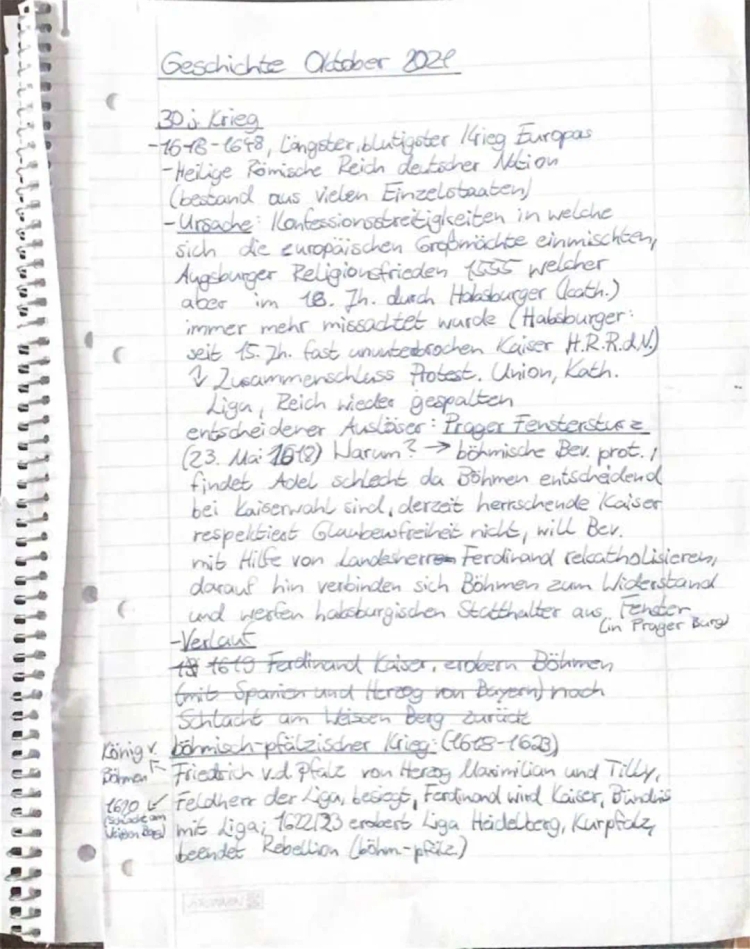 Geschichte Oktober 2024
30 j. Krieg
-1618-1648, Längster, blutigster Krieg Europas
-Heilige Römische Reich deutscher Nation
(bestand aus vielen Einzelstaaten)
-Ursache: Konfessionsstreitigkeiten in welche
sich die europäischen Großmächte einmischten,
Augsburger Religionsfrieden 1555 welcher
aber im 18. Jh. durch Habsburger (kath.)
immer mehr missachtet wurde (Habsburger:
seit 15. Jh. fast ununterbrochen Kaiser H.R.R.d.N.)
↳ Zusammenschluss Protest. Union, Kath.
Liga, Reich wieder gespalten
entscheidener Auslöser: Prager Fenstersturz
(23. Mai 1618) Warum? → böhmische Bev. prot.,
findet Adel schlecht da Böhmen entscheidend
bei Kaiserwahl sind, derzeit herrschende Kaiser
respektiert Glaubensfreiheit nicht, will Bev.
mit Hilfe von Landesherren Ferdinand rekatholisieren,
darauf hin verbinden sich Böhmen zum Widerstand
und werfen habsburgischen Statthalter aus Fenster
(in Prager Burg)
-Verlauf
18 1619 Ferdinand Kaiser, erobern Böhmen
(mit Spanien und Herzog von Bayern) nach
Schlacht am Weissen Berg zurück
böhmisch-pfälzischer Krieg: (1618-1623)
König v. Böhmen
Friedrich v.d. Pfalz von Herzog Maximilian und Tilly,
1620 (Schlacht am Weissen Berg)
Feldherr der Liga, besiegt, Ferdinand wird Kaiser, Bündnis
mit Liga; 1622/23 erobert Liga Heidelberg, Kurpfalz,
beendet Rebellion (böhm-pfälz.)